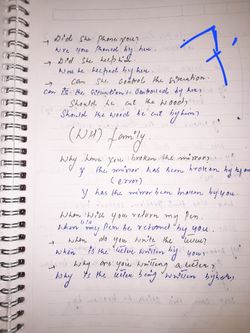 → Did she phone you.
Were you phoned by her.
→ Did she help him
Was he helped by her.
→ Can she controls the situation.
Can is the situation is controlled by her.
Should he cut the wood,
Should the wood be cut by him
(WH) family.
Why have you broken the mirror
y the mirror has been broken by by you
(error)
y has the mirror been broken by you.
When will you return my pen.
When my pen be returned by you.
→ When do you write the letter?
When is the letter written by you?
→ Why are you writing a letter?
Why is the letter being written by her.